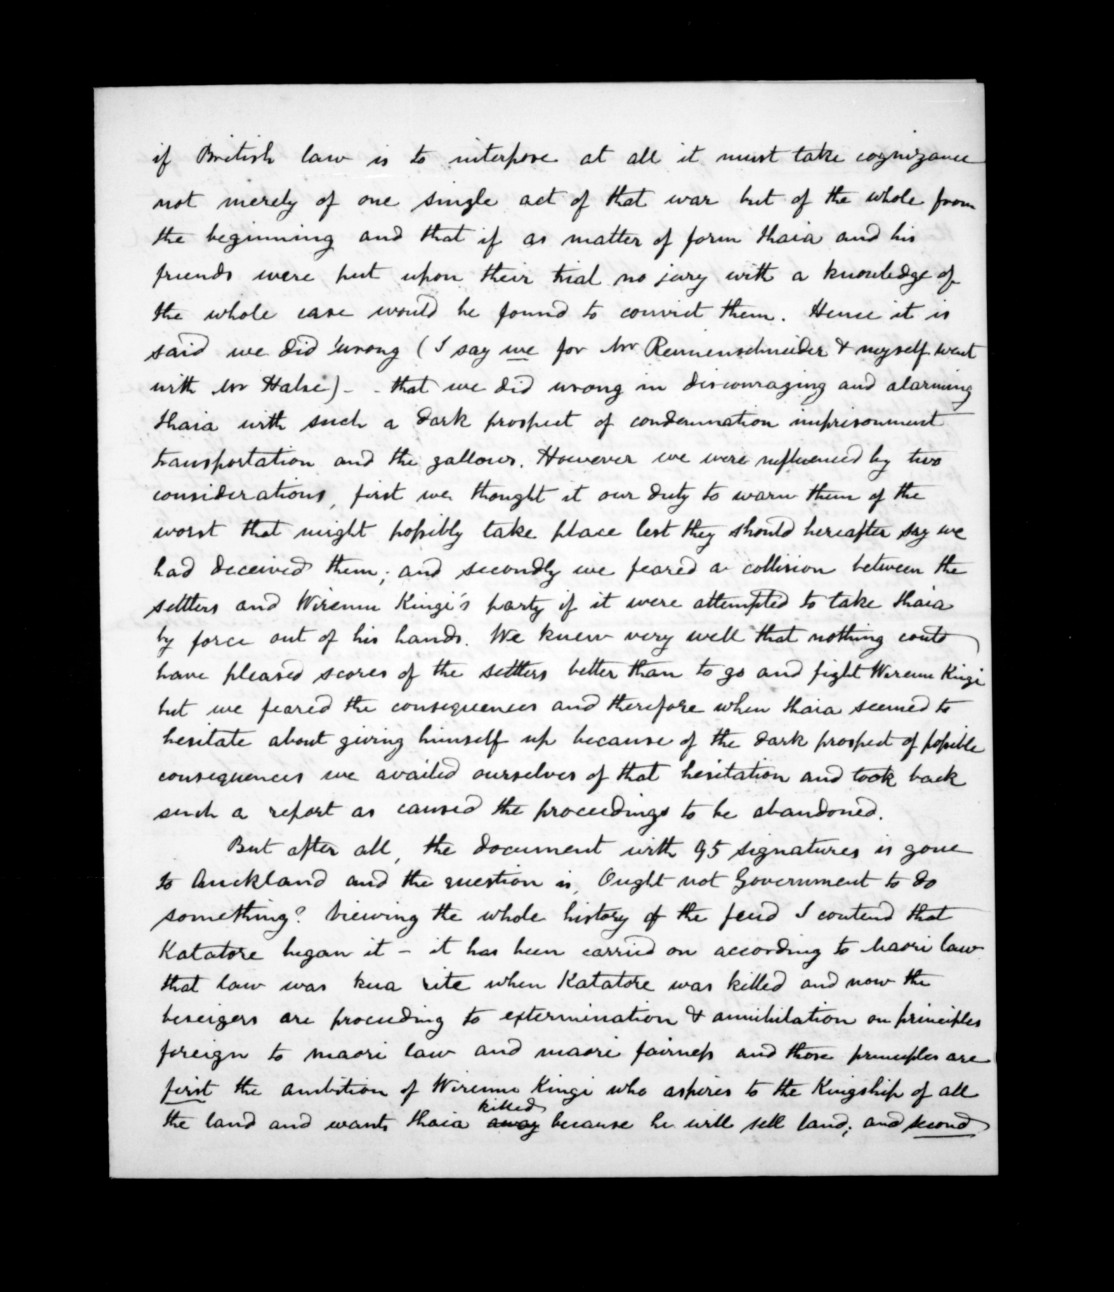 if British law is to interpose at all it must take cognizance
not merely of one single act of that war but of the whole from
the beginning and that if as matter of form Ihaia and his
friends were put upon their trial no jury with a knowledge of
the whole case would be found to convict them. Hence it is
said we did wrong (I say we for Mr Reimenschneider & myself went
with Mr Halse) - - that we did wrong in discouraging and alarming
Ihaia with such a dark prospect of condemnation imprisonment
transportation and the gallows. However we were influenced by two
considerations, first we thought it our duty to warn them of the
worst that might possibly take place lest they should hereafter say we
had deceived them; and secondly we feared a collision between the
settlers and Wiremu Kingi's party if it were attempted to take Ihaia
by force out of his hands. We knew very well that nothing could
have pleased scores of the settlers better than to go and fight Wiremu Kingi
but we feared the consequences and therefore when Ihaia seemed to
hesitate about giving himself up because of the dark prospect of possible
consequences we availed ourselves of that hesitation and took back
such a report as caused the proceedings to be abandoned.
But after all, the document with 95 signatures is gone
to Auckland and the question is, Ought not Government to do
something? Viewing the whole history of the feud I contend that
Katatore began it - it has been carried on according to Maori law
that law was kua rite when Katatore was killed and now the
beseigers are proceeding to extermination & annihilation on principles
foreign to maori law and maori fairness and those principles are
first the ambition of Wiremu Kingi who aspires to the Kingship of all
the land and wants Ihaia away killed because he will sell land; and second